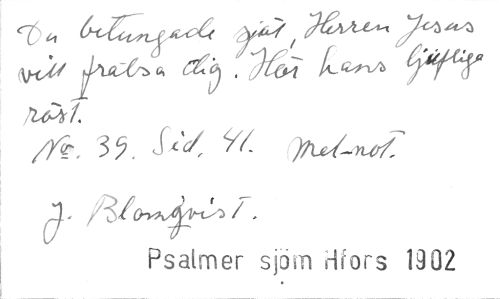 Du betungade själ, Herren Jesus
vill frälsa dig. Hör hans ljufliga
röst.
No. 39. Sid. 41. Mel-not.
J. Blomqvist.
Psalmer sjöm Hfors 1902